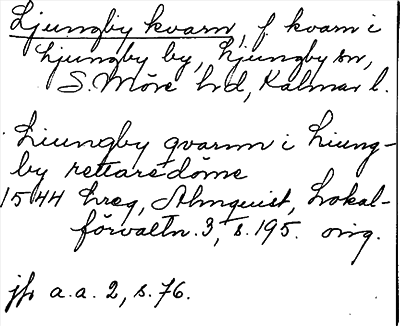 Ljungby kvarn, f. kvarn i
Ljungby by, Ljungby sn,
S. Möre hd, Kalmar l.
Liungby qvarnn i Liung-
by rettaredöme
1544 hreg, Almquist, Lokal-
förvaltn. 3, s. 195. orig.
jfr a.a. 2, s. 76.